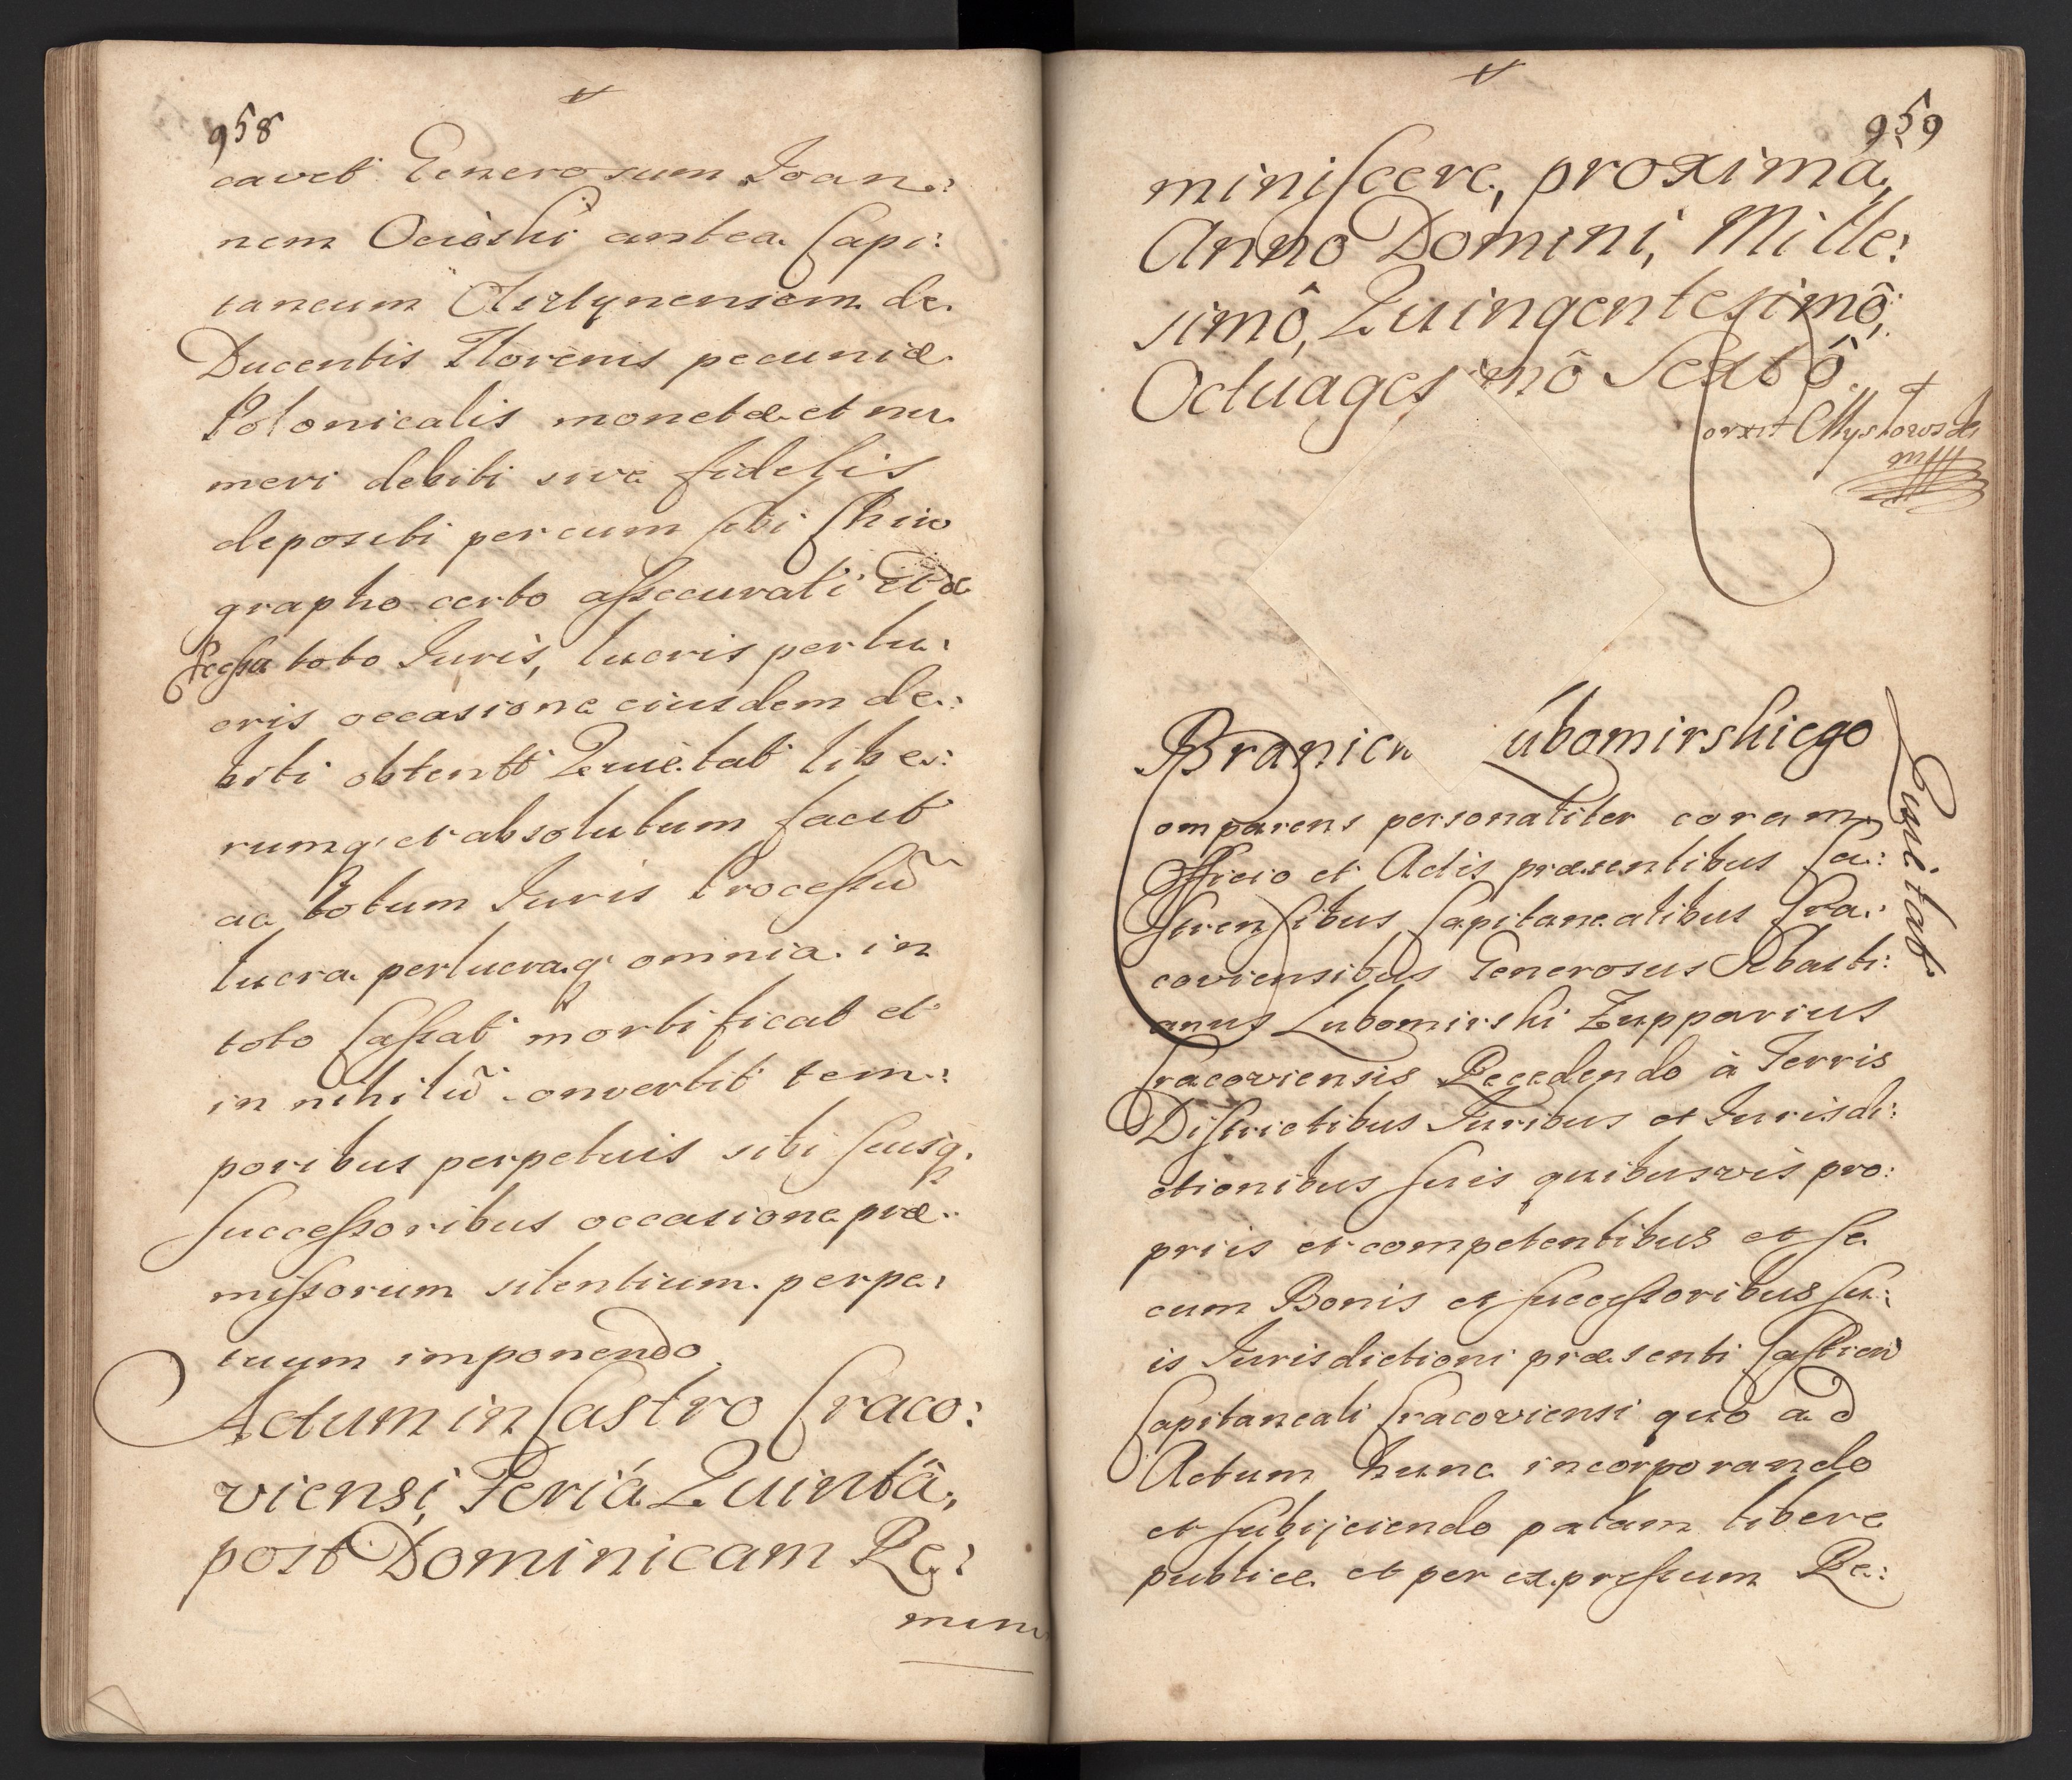 958
cavet Generosum Joan:
nem Ocieski antea Capi:
taneum Olsztynensem de
Ducentis Florenis pecuniæ
Polonicalis monetæ et nu
meri debiti sive fidelis
depositi per eum sibi Chiro
grapho certo assecurati et de
Processu toto Juris, lucris perlu:
cris occasione eiusdem de:
biti obtentt Quietat libe:
rumq; et absolutum facit
ac totum Juris Processũ
lucra perlucraq; omnia in
toto Cassat mortificat et
in nihilũ convertit tem:
poribus perpetuis sibi suisq;
successoribus occasione præ:
missorum silentium perpe:
tuum imponendo.
Actum in Castro Craco:
viensi, Feriâ Quintâ,
post Dominicam Re:
mini
959
miniscere, proximâ,
Anno Domini, Mille:
simô, Quingentesimô,
Octuagesimô Sextô.
Branick Lubomirskiego
Quietat
Comparens personaliter coram
Officio et Actis præsentibus Ca:
strensibus Capitanealibus Cra:
coviensibus Generosus Sebasti:
anus Lubomirski Zupparius
Cracoviensis Recedendo à Terris
Districtibus Juribus et Jurisdi:
ctionibus suis quibusvis pro:
priis et competentibus et se
cum Bonis et successoribus su:
is Jurisdictioni præsenti Castren
Capitaneali Cracoviensi quo ad
Actum hunc incorporando
et subijciendo palam libere
publice et per expressum Re: